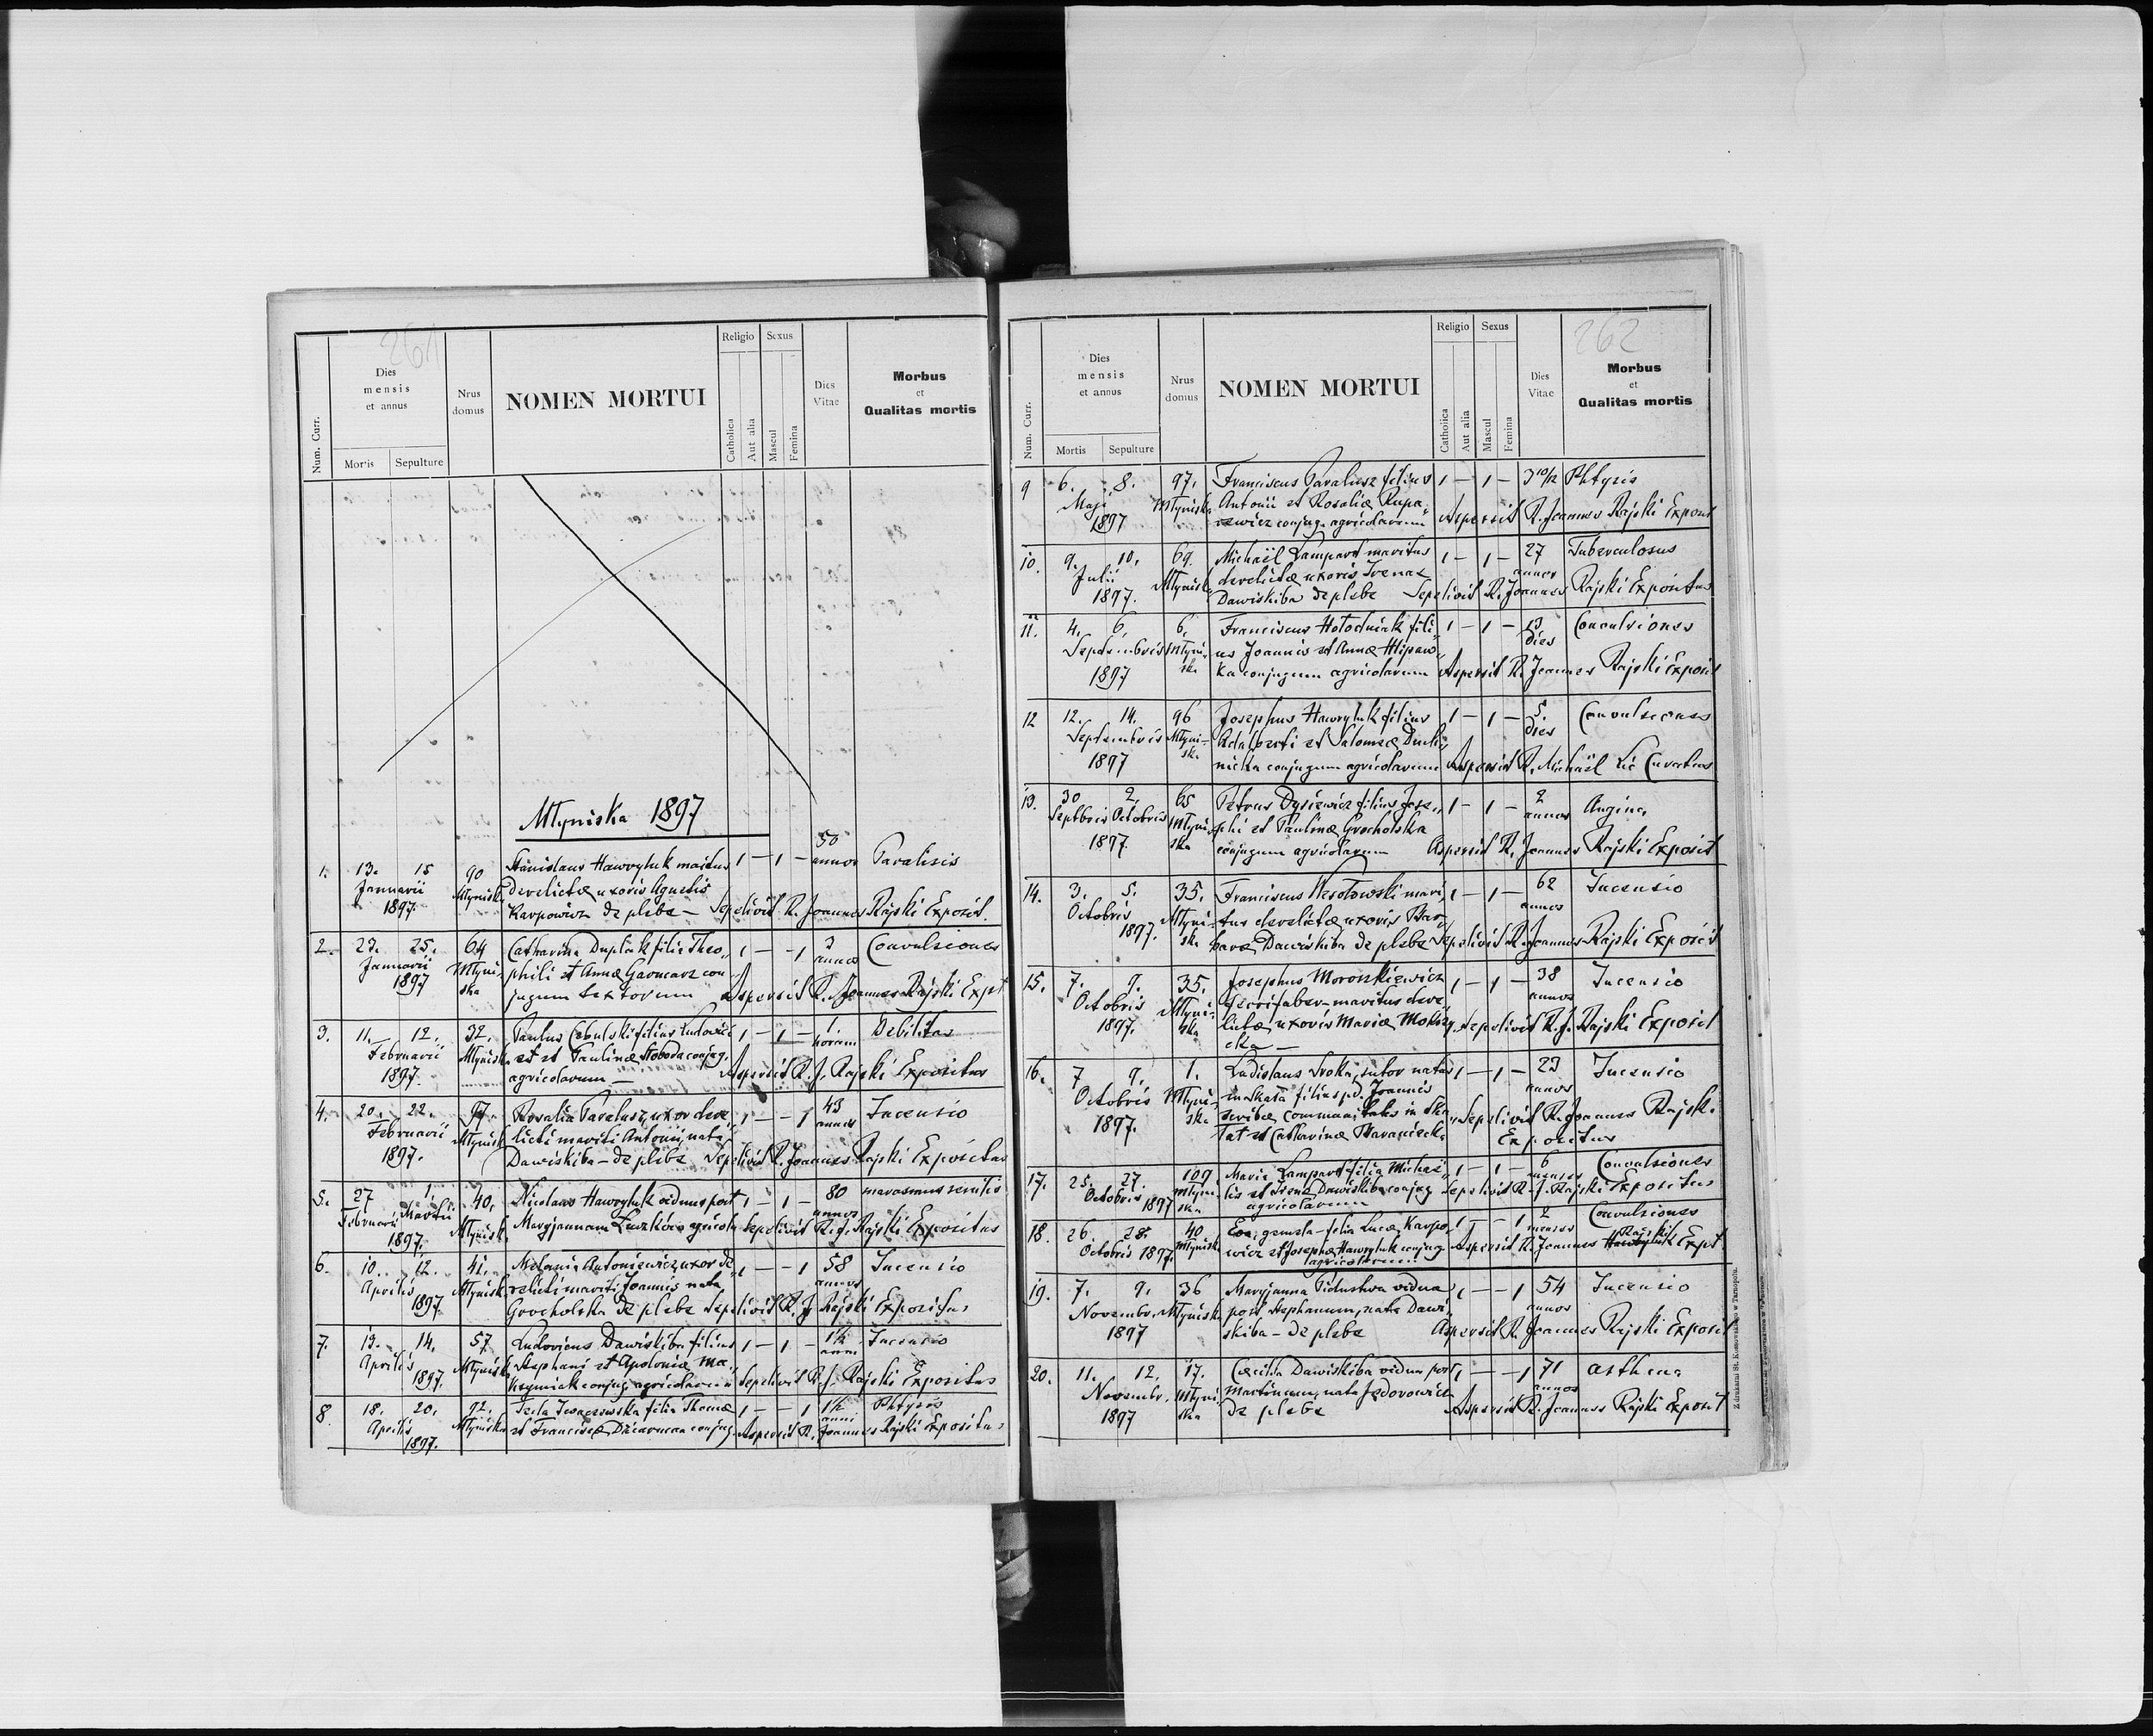 261
Num. Curr.
Dies
mensis
et annus
Mortis Sepulture
Nrus
domus
NOMEN MORTUI
Religio Sexus
Catholica Aut alia Mascul Femina
Dies
Vitae
Morbus
et
Qualitas mortis
Młyniska 1897
1. 13. 15 90 Stanislaus Hawryluk maritus 1 — 1 — 50 annos Paralisis
Januarii Młyniska derelictae uxoris Agnetis
1897. Karpowicz de plebe — Sepelivit R. Joannes Rajski Exposit.
2. 23. 25. 64 Catharina Duplak filia Theo„ 1 — — 1 3 annos Convulsiones
Januarii Młyni„ phili et Annae Garncarz con„
1897 ska jugum Aspersit R. Joannes Rajski Expt
3. 11. 12. 32. Paulus Cebulski filius Ludovici 1 — 1 — 1. horam Debilitas
Februarii Młyniska et et Paulinae Słoboda conjug.
1897. agricolarum — Aspersit R. J. Rajski Expositus
4. 20. 22. 97. Rosalia Paralusz, uxor dere„ 1 — — 1 43 annos Incensio
Februarii Młynisk. licti mariti Antonii, nata
1897. Dawiskiba — de plebe Sepelivit R. Joannes Rajski Expositus
5. 27 1. 40. Nicolaus Hawryluk viduus post 1 — 1 — 80 annos marasmus senilis
Februarii Martii Młynisk. Maryjannam agricola Sepelivit R. J. Rajski Expositus
1897.
6. 10. 12. 41. Melania Antoniewicz, uxor de„ 1 — — 1 58 annos Incensio
Aprilis Młynisk. relicti mariti Joannis nata
1897. Grocholska de plebe Sepelivit R. J. Rajski Expositus
7. 13. 14. 57 Ludovicus Dawiskiba filius 1 — 1 — 1½ anni Incensio
Aprilis Młynisk. Stephani et Apoloniae Ma„
1897. conjug. agricolarum Sepelivit R. J. Rajski Expositus
8. 18. 20. 92. Tecla Iwaczewska filia Thomae 1 — — 1 1½ anni Phtysis
Aprilis Młyniska et Franciscae conjug. Aspersit R. Joannes Rajski Expositus
1897.
262
Num. Curr.
Dies
mensis
et annus
Mortis Sepulture
Nrus
domus
NOMEN MORTUI
Religio Sexus
Catholica Aut alia Mascul Femina
Dies
Vitae
Morbus
et
Qualitas mortis
9 6. 8. 97. Franciscus Paralusz filius 1 — 1 — 3 10/12 Phtysis
Maji Młyniska Antonii et Rosaliae Kupa„
1897 rewicz conjug. agricolarum Aspersit R. Joannes Rajski Exposit
10. 9. 10. 69. Michaël Lampart maritus 1 — 1 — 27 annos Tuberculosus
Julii Młynisk. derelictae uxoris Irenae
1897. Dawiskiba de plebe Sepelivit R. Joannes Rajski Expositus
11. 4. 6. 6. Franciscus Hołodniak fili„ 1 — 1 — 13 dies Convulsiones
Septembris Młyni„ us Joannis et Annae Hlipaw„
1897 ska ka conjugum agricolarum Aspersit R. Joannes Rajski Exposit
12 12. 14. 96 Josephus Hawryluk filius 1 — 1 — 5. dies Convulsiones
Septembris Młyni- Adalberti et Salomeae
1897 ska nicka conjugum agricolarum Aspersit R. Michaël Curatus
13. 30 2. 65 Petrus Dysiewicz filius Jose„ 1 — 1 — 2 annos Angina
Septbris Octobris Młyni„ phi et Paulinae Grocholska
1897. ska conjugum agricolarum Aspersit R. Joannes Rajski Exposit
14. 3. 5. 35. Franciscus Wesołowski mari„ 1 — 1 — 62 annos Incensio
Octobris Młyni- tus derelictae uxoris Bar„
1897. ska barae Dawiskiba de plebe Sepelivit R. Joannes Rajski Exposit
15. 7. 9. 35. Josephus Moroszkiewicz 1 — 1 — 38 annos Incensio
Octobris Młyni- faber — maritus dere„
1897. ska lictae uxoris Mariae Sepelivit R. J. Rajski Exposit
cka —
16. 7 9. 1. Ladislaus Sroka, sutor natus 1 — 1 — 23 annos Incensio
Octobris Młyni„ in Skała filius pd. Joannis
1897. ska scribae in Ska„ Sepelivit R. Joannes Rajski
łat et Catharinae Baraniecka Expositus
17. 25. 27. 109 Maria Lampart filia Michaë„ 1 — 1 — 6 menses Convulsiones
Octobris Młyni„ lis et Irenae Dawiskiba conjug. Sepelivit R. J. Rajski Expositus
1897 ska agricolarum
18. 26. 28. 40 Eva, gemela — filia Lucae Karpo„ 1 — — 1 2 menses Convulsiones
Octobris 1897. Młynisk. wicz et Josephae Hawryluk conjug. Aspersit R. Joannes Rajski Expt.
agricolarum
19. 7. 9. 36 Maryjanna vidua 1 — — 1 54 annos Incensio
Novembr. Młynisk. post Stephanum, nata Dawi„
1897 skiba — de plebe Aspersit R. Joannes Rajski Exposit
20. 11. 12. 17. Caecilia Dawiskiba vidua post 1 — — 1 71 annos asthena
Novembr. Młyni„ Martinum, nata Fedorowicz
1897 ska de plebe Aspersit R. Joannes Rajski Exposit
Z drukarni St. Kossowskiego w Tarnopolu.